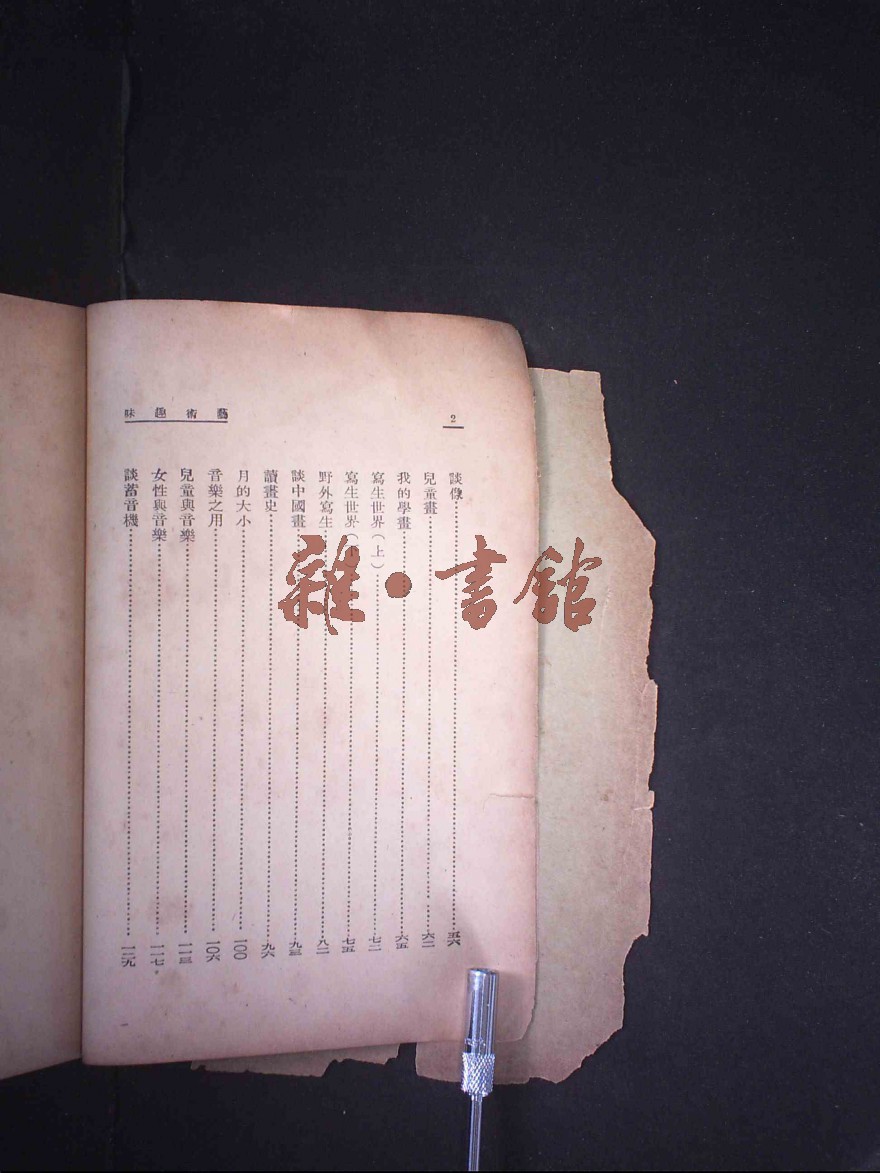 藝術趣味
2
談像……五六
兒童畫……六二
我的學畫……六五
寫生世界（上）……七二
寫生世界（下）……七五
野外寫生……八二
談中國畫……九三
讀畫史……九六
月的大小……一〇〇
音樂之用……一〇六
兒童與音樂……一一三
女性與音樂……一一七
談蓄音機……一二九
雜·書館